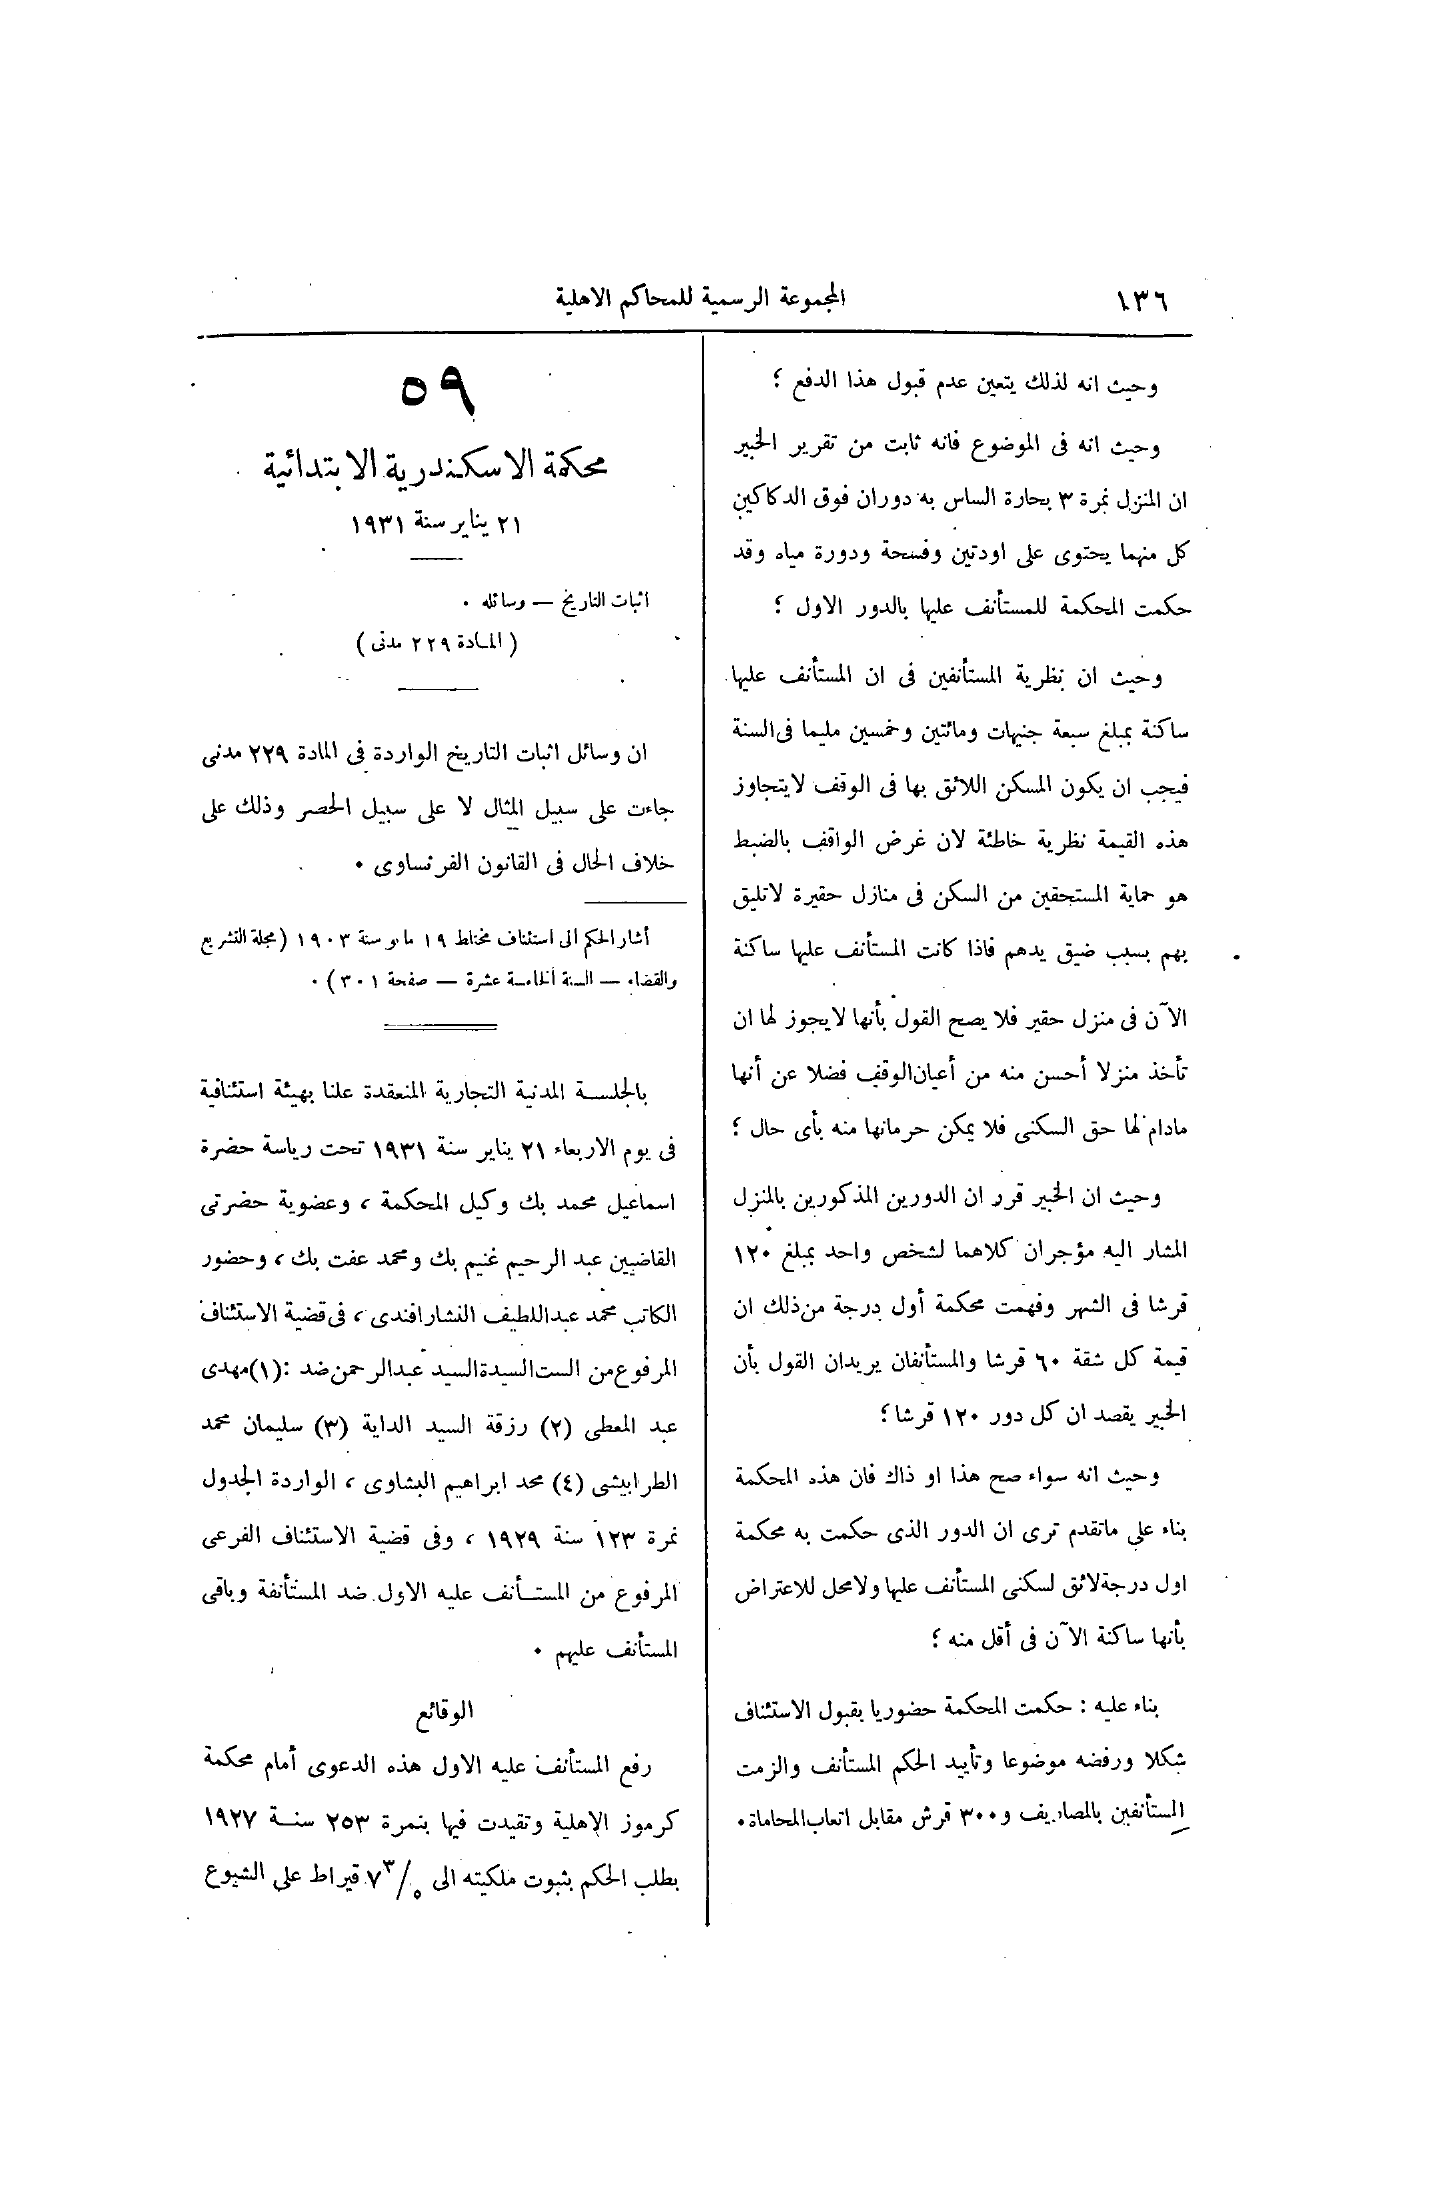 ١٣٦
المجموعة الرسمية للمحاكم الاهلية
وحيث انه لذلك يتعين عدم قبول هذا الدفع ؛
وحيث انه فى الموضوع فانه ثابت من تقرير الخبير
ان المنزل نمرة ٣ بحارة الساس به دوران فوق الدكاكين
كل منهما يحتوى على اودتين وفسحة ودورة مياه وقد
حكمت المحكمة للمستأنف عليها بالدور الاول ؛
وحيث ان نظرية المستأنفين فى ان المستأنف عليها
ساكنة بمبلغ سبعة جنيهات ومائتين وخمسين مليما فى السنة
فيجب ان يكون المسكن اللائق بها فى الوقف لا يتجاوز
هذه القيمة نظرية خاطئة لان غرض الواقف بالضبط
هو حماية المستحقين من السكن فى منازل حقيرة لا تليق
بهم بسبب ضيق يدهم فاذا كانت المستأنف عليها ساكنة
الآن فى منزل حقير فلا يصح القول بأنها لا يجوز لها ان
تأخذ منزلا أحسن منه من أعيان الوقف فضلا عن أنها
مادام لها حق السكنى فلا يمكن حرمانها منه بأى حال ؛
وحيث ان الخبير قرر ان الدورين المذكورين بالمنزل
المشار اليه مؤجران كلاهما لشخص واحد بمبلغ ١٢٠
قرشا فى الشهر وفهمت محكمة أول درجة من ذلك ان
قيمة كل شقة ٦٠ قرشا والمستأنفان يريدان القول بأن
الخبير يقصد ان كل دور ١٢٠ قرشا ؛
وحيث انه سواء صح هذا او ذاك فان هذه المحكمة
بناء على ماتقدم ترى ان الدور الذى حكمت به محكمة
اول درجة لائق لسكنى المستأنف عليها ولا محل للاعتراض
بأنها ساكنة الآن فى أقل منه ؛
بناء عليه : حكمت المحكمة حضوريا بقبول الاستئناف
شكلا ورفضه موضوعا وتأييد الحكم المستأنف والزمت
المستأنفين بالمصاريف و ٣٠٠ قرش مقابل اتعاب المحاماة ٠
٥٩
محكمة الاسكندرية الابتدائية
٢١ يناير سنة ١٩٣١
اثبات التاريخ — وسائله ٠
( المادة ٢٢٩ مدنى )
ان وسائل اثبات التاريخ الواردة فى المادة ٢٢٩ مدنى
جاءت على سبيل المثال لا على سبيل الحصر وذلك على
خلاف الحال فى القانون الفرنساوى ٠
أشار الحكم الى استئناف مختلط ١٩ مايو سنة ١٩٠٣ ( مجلة التشريع
والقضاء — السنة الخامسة عشرة — صفحة ٣٠١ ) ٠
بالجلسة المدنية التجارية المنعقدة علنا بهيئة استئنافية
فى يوم الاربعاء ٢١ يناير سنة ١٩٣١ تحت رياسة حضرة
اسماعيل محمد بك وكيل المحكمة ، وعضوية حضرتى
القاضيين عبد الرحيم غنيم بك ومحمد عفت بك ، وحضور
الكاتب محمد عبد اللطيف النشار افندى ، فى قضية الاستئناف
المرفوع من الست السيدة السيد عبد الرحمن ضد : (١) مهدى
عبد المعطى (٢) رزقة السيد الداية (٣) سليمان محمد
الطرابيشى (٤) محمد ابراهيم البشاوى ، الواردة الجدول
نمرة ١٢٣ سنة ١٩٢٩ ، وفى قضية الاستئناف الفرعى
المرفوع من المستأنف عليه الاول ضد المستأنفة وباقى
المستأنف عليهم ٠
الوقائع
رفع المستأنف عليه الاول هذه الدعوى أمام محكمة
كرموز الاهلية وتقيدت فيها بنمرة ٢٥٣ سنة ١٩٢٧
بطلب الحكم بثبوت ملكيته الى ٧ ٣/٥ قيراط على الشيوع